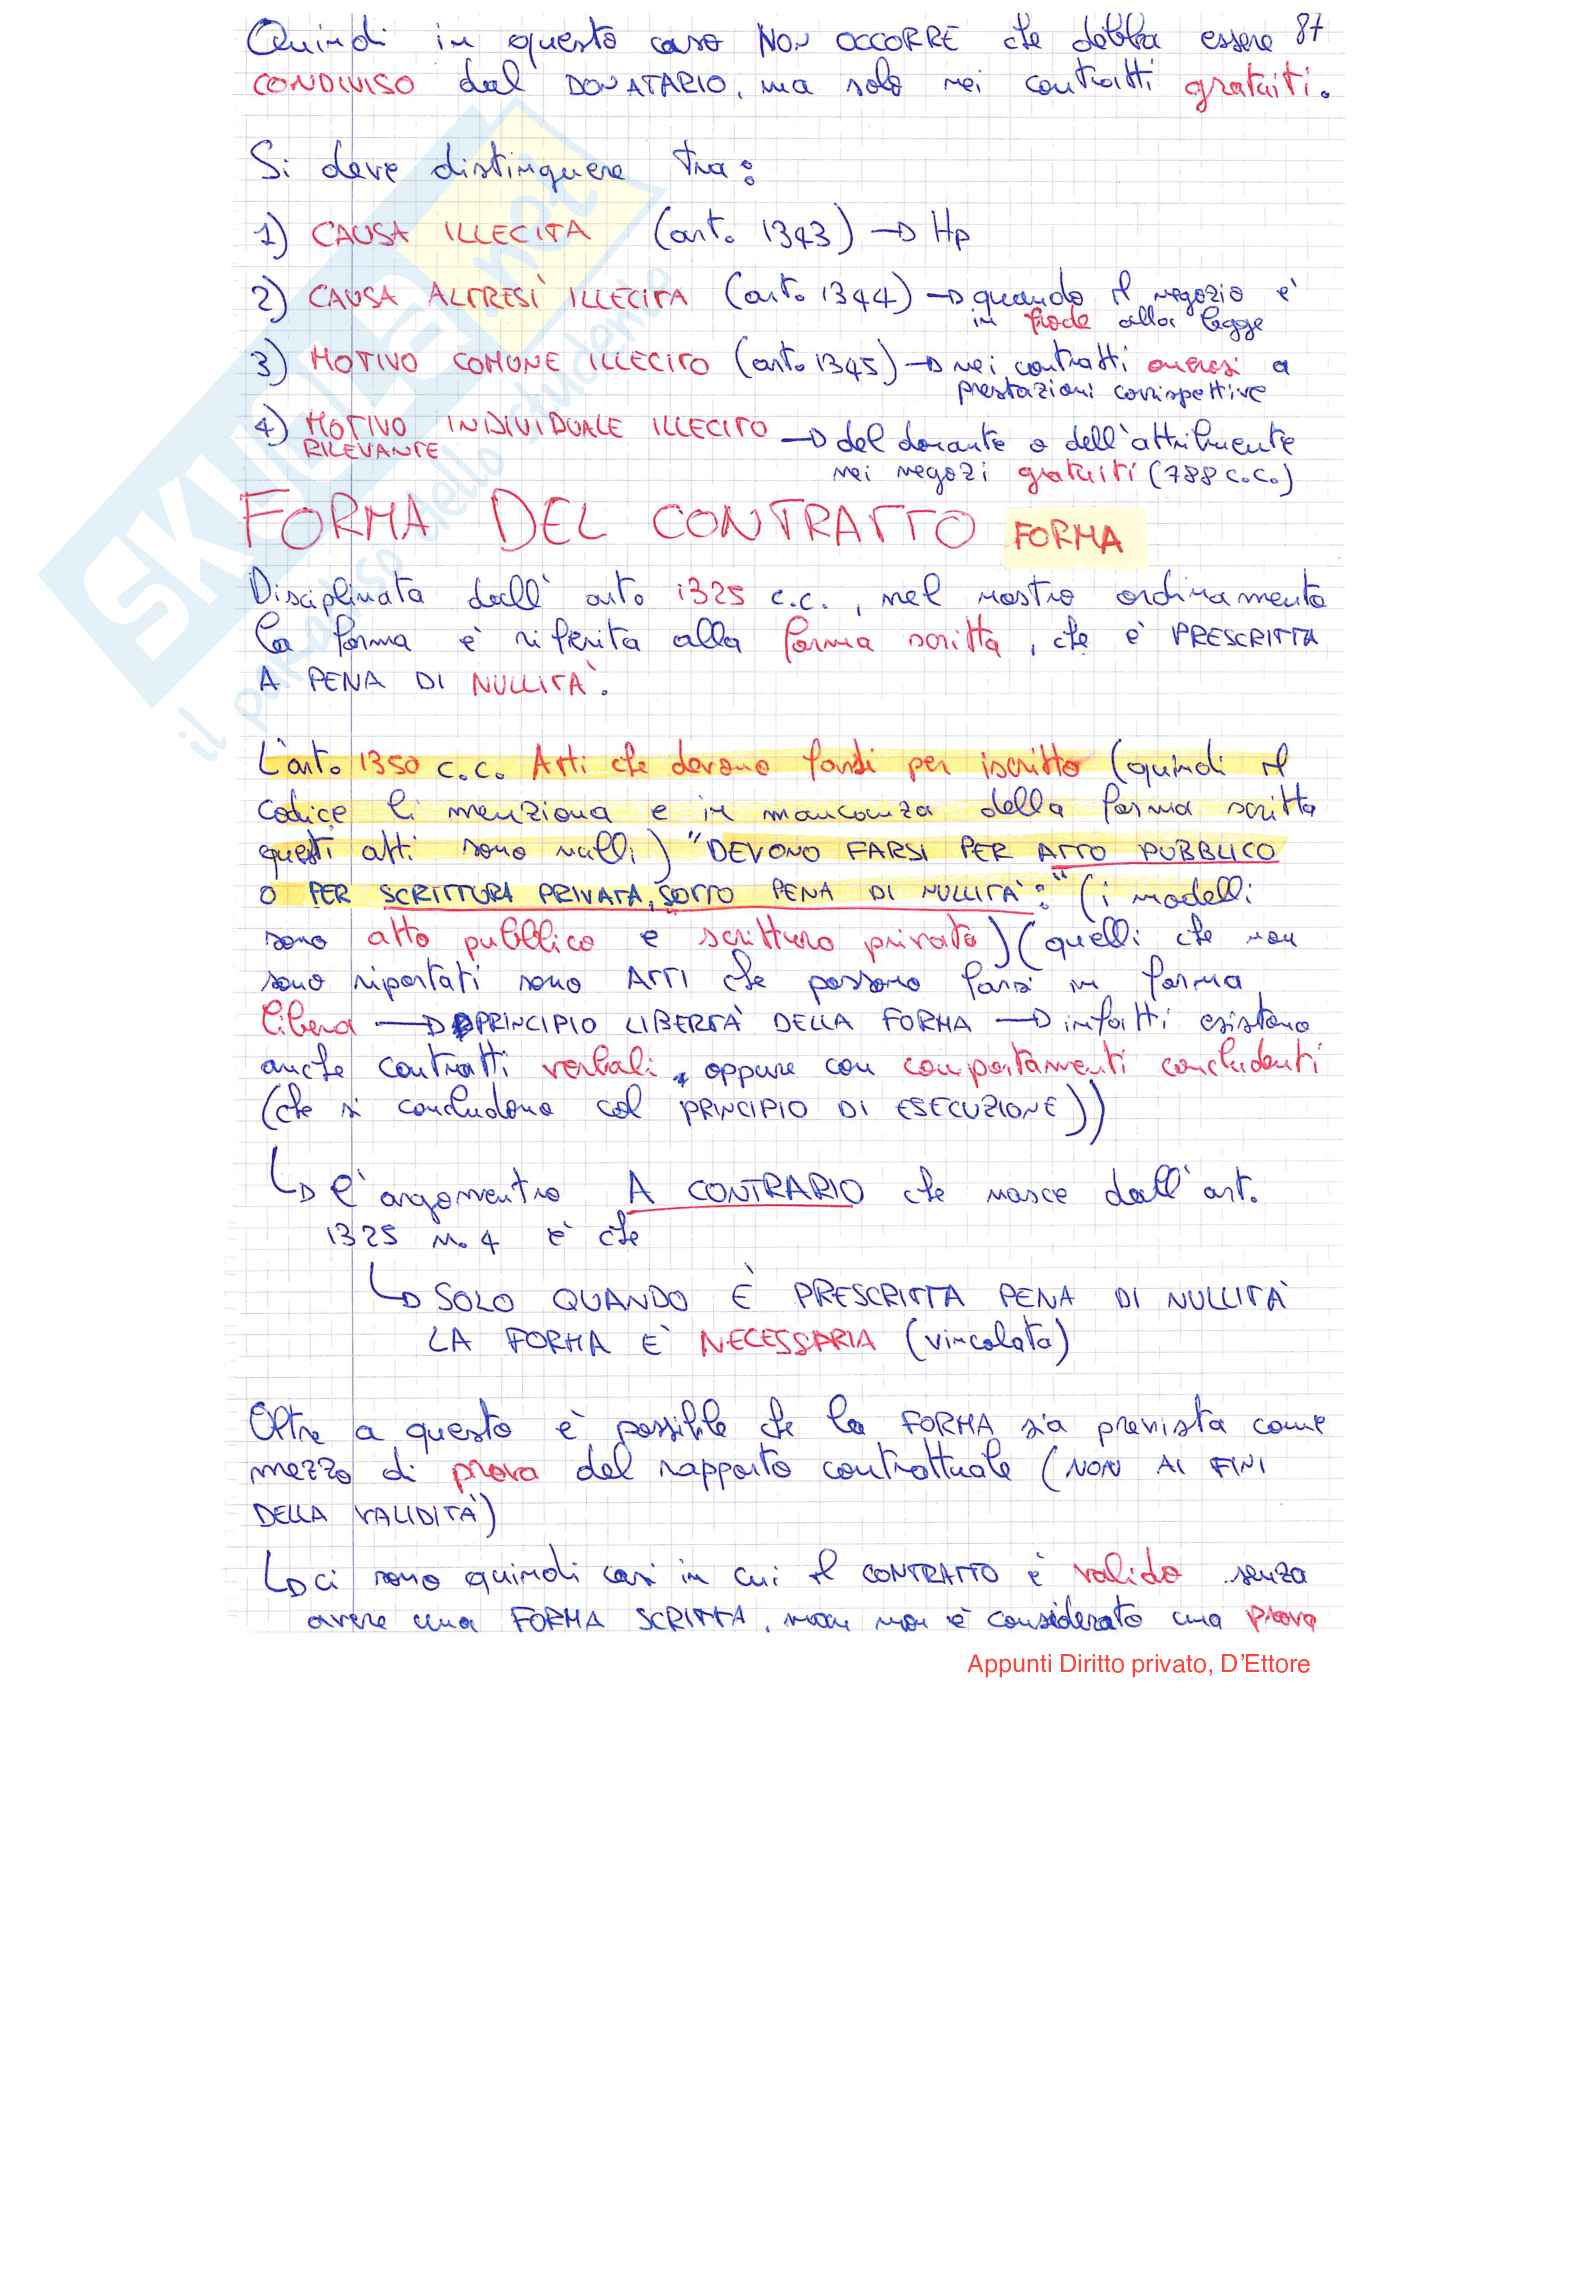 87
Quindi in questo caso NON OCCORRE che debba essere
CONDIVISO dal DONATARIO, ma solo nei contratti gratuiti.
Si deve distinguere tra:
1) CAUSA ILLECITA (art. 1343) → Hp
2) CAUSA ALTRESÌ ILLECITA (art. 1344) → quando il negozio è
in frode alla legge
3) MOTIVO COMUNE ILLECITO (art. 1345) → nei contratti onerosi a
prestazioni corrispettive
4) MOTIVO INDIVIDUALE ILLECITO → del donante o dell'attribuente
RILEVANTE
nei negozi gratuiti (788 c.c.)
FORMA DEL CONTRATTO FORMA
Disciplinata dall' art. 1325 c.c., nel nostro ordinamento
la forma è riferita alla forma scritta, che è PRESCRITTA
A PENA DI NULLITÀ.
L'art. 1350 c.c. Atti che devono farsi per iscritto (quindi il
codice li menziona e in mancanza della forma scritta
questi atti sono nulli) "DEVONO FARSI PER ATTO PUBBLICO
O PER SCRITTURA PRIVATA, SOTTO PENA DI NULLITÀ:" (i modelli
sono atto pubblico e scrittura privata) (quelli che non
sono riportati sono ATTI che possono farsi in forma
libera → PRINCIPIO LIBERTÀ DELLA FORMA → infatti esistono
anche contratti verbali, oppure con comportamenti concludenti
(che si concludono col PRINCIPIO DI ESECUZIONE))
↳ l'argomento A CONTRARIO che nasce dall'art.
1325 n. 4 è che
↳ SOLO QUANDO È PRESCRITTA PENA DI NULLITÀ
LA FORMA È NECESSARIA (vincolata)
Oltre a questo è possibile che la FORMA sia prevista come
mezzo di prova del rapporto contrattuale (NON AI FINI
DELLA VALIDITÀ)
↳ ci sono quindi casi in cui il CONTRATTO è valido senza
avere una FORMA SCRITTA, ma non è considerato una prova
Appunti Diritto privato, D'Ettore
SKUOLA.net
il paradiso dello studente